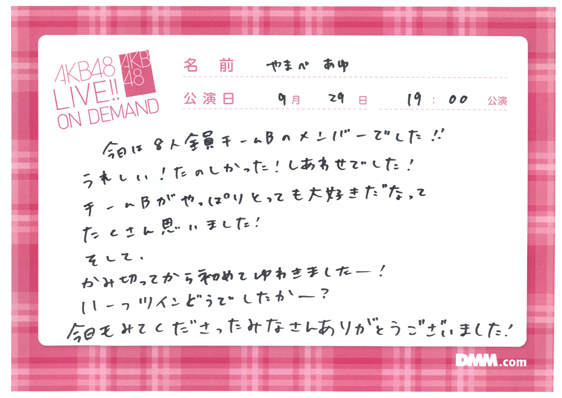 AKB48
LIVE!!
ON DEMAND
AKB
48
名前 やまべ あゆ
公演日 9月 29日 19:00 公演
今日は8人全員チームBのメンバーでした!!
うれしい!たのしかった!しあわせでした!
チームBがやっぱりとっても大好きだなって
たくさん思いました!
そして、
かみ切ってから初めてゆわきましたー!
いーっツインどうでしたかー?
今日もみてくださったみなさんありがとうございました!
DMM.com